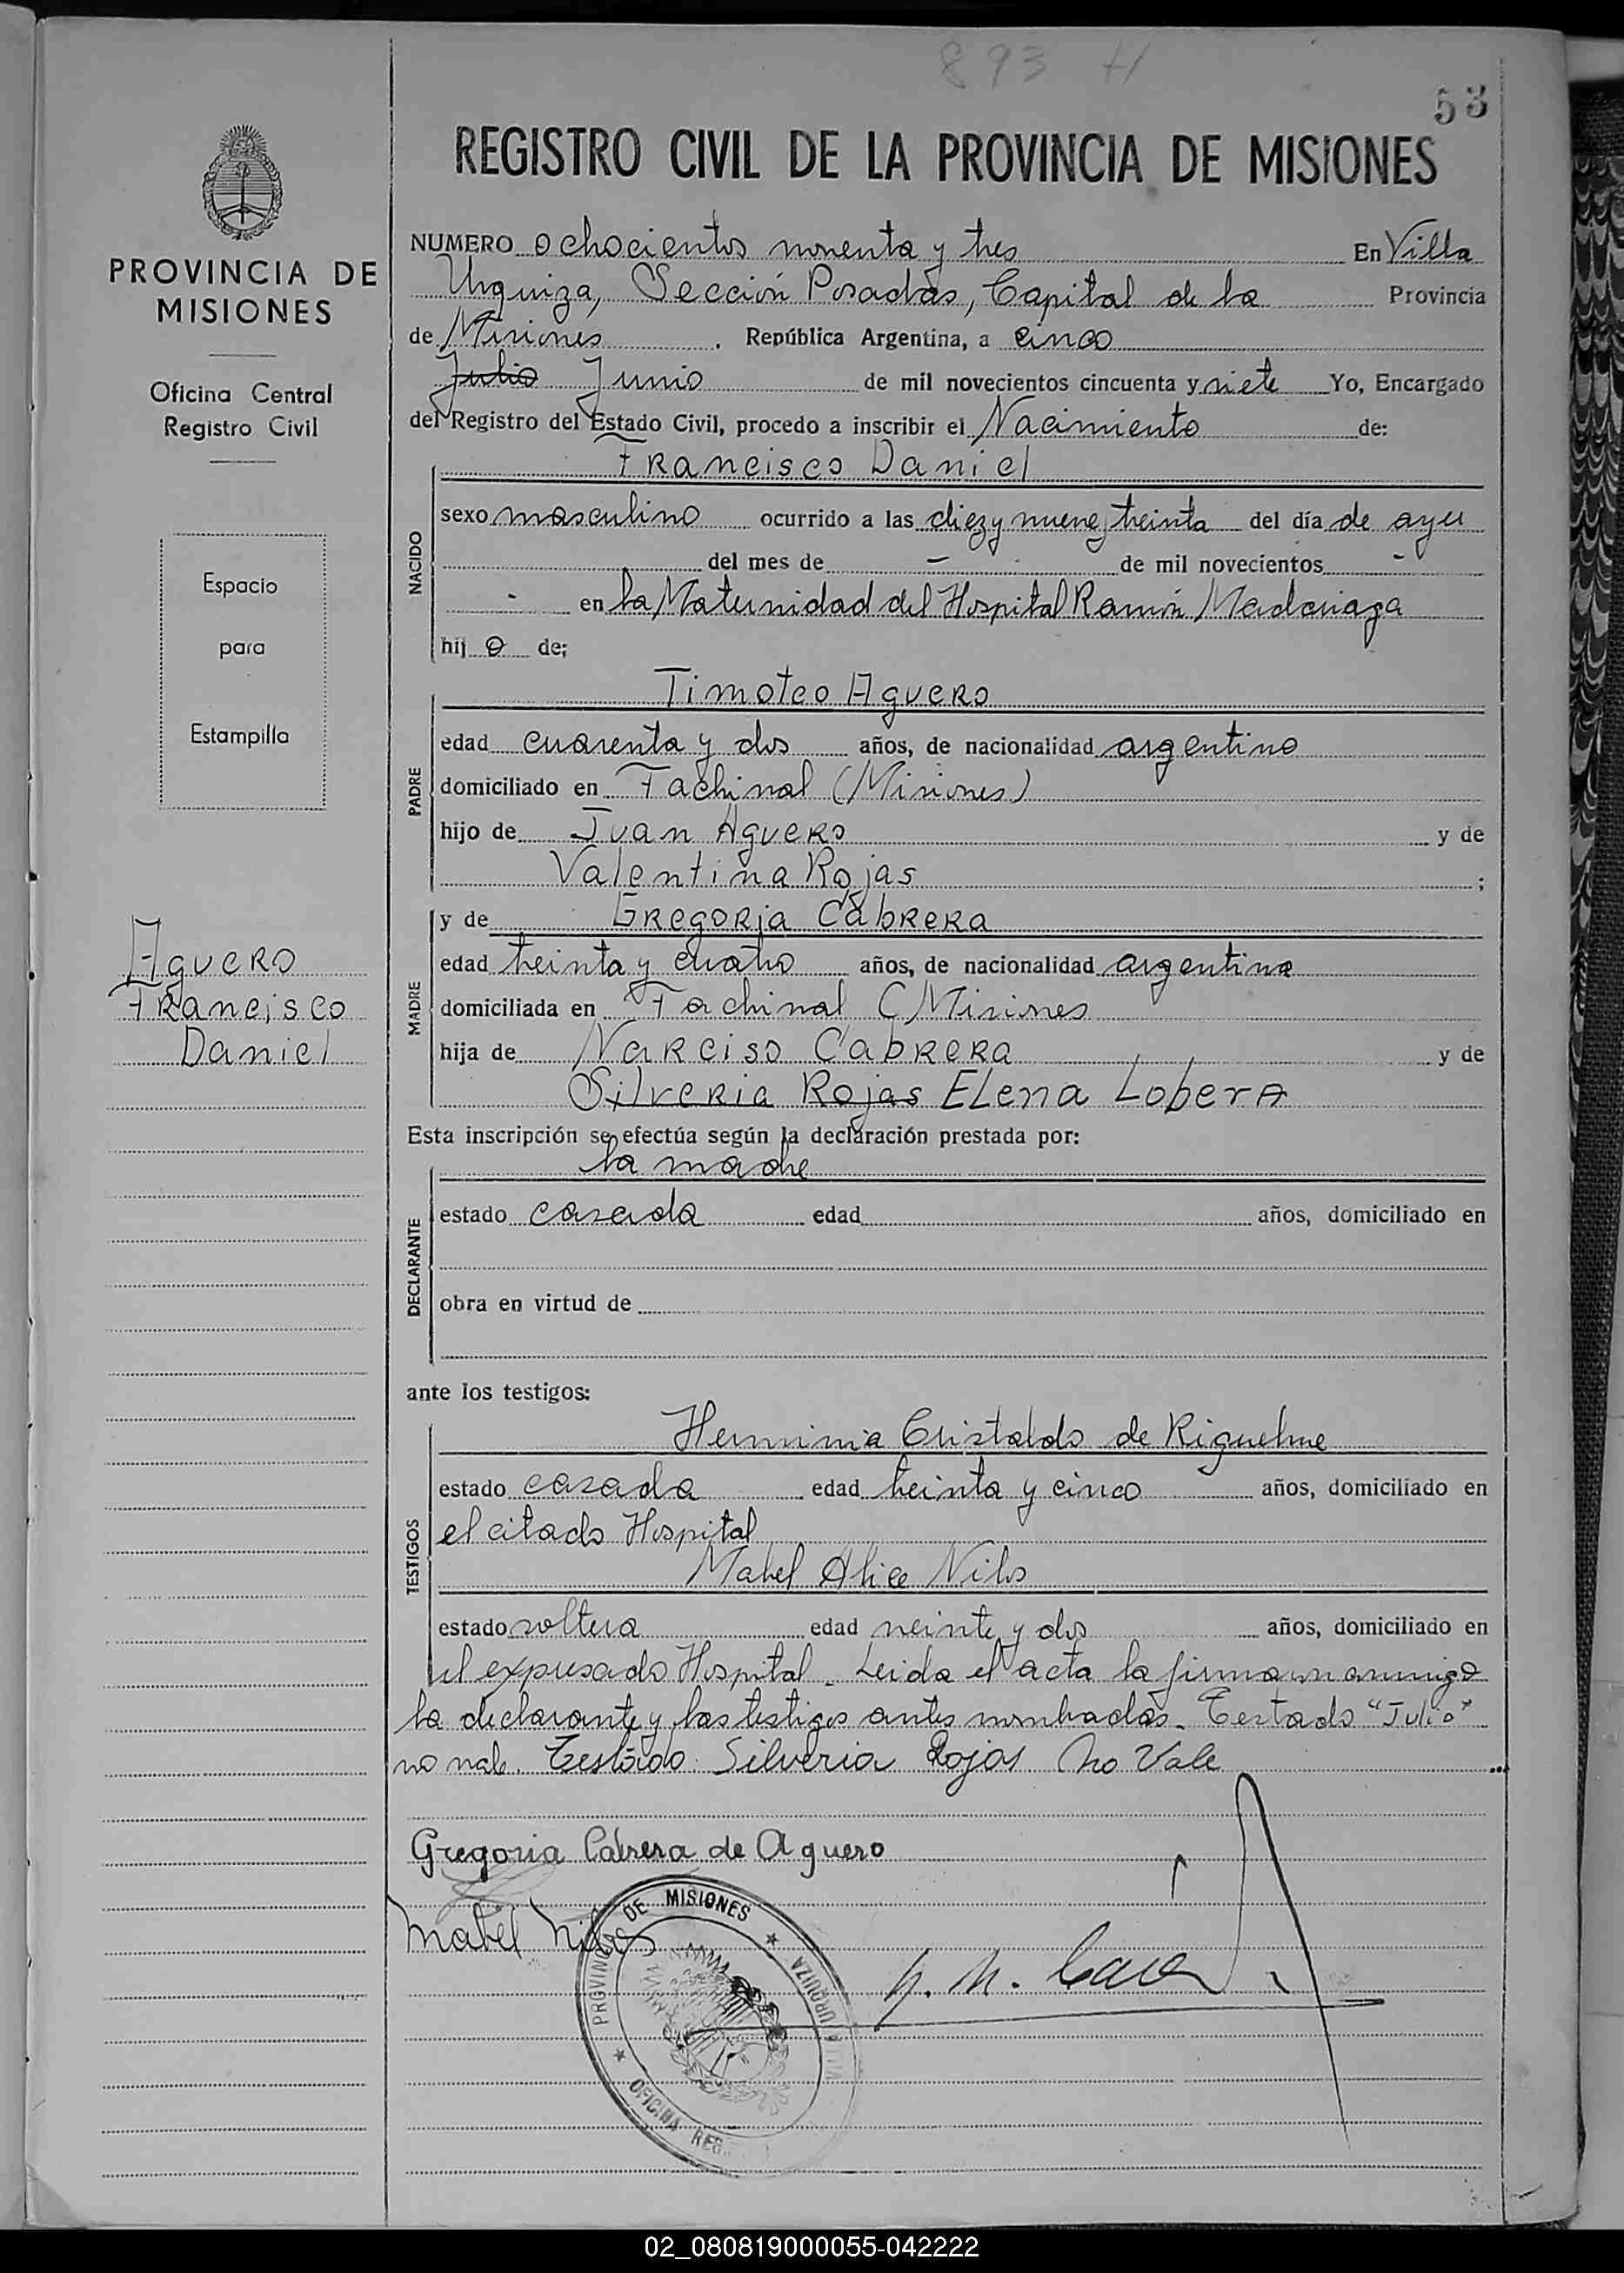 893 H
53
REGISTRO CIVIL DE LA PROVINCIA DE MISIONES
PROVINCIA DE
MISIONES
Oficina Central
Registro Civil
Espacio
para
Estampilla
Aguero
Francisco
Daniel
NUMERO ochocientos noventa y tres En Villa
Urquiza, Sección Posadas, Capital de la Provincia
de Misiones. República Argentina, a cinco
Julio Junio de mil novecientos cincuenta y siete Yo, Encargado
del Registro del Estado Civil, procedo a inscribir el Nacimiento de:
NACIDO
Francisco Daniel
sexo masculino ocurrido a las diez y nueve, treinta del día de ayer
del mes de - de mil novecientos -
- en la Maternidad del Hospital Ramón Madariaga
hij o de;
PADRE
Timoteo Aguero
edad cuarenta y dos años, de nacionalidad argentino
domiciliado en Fachinal (Misiones)
hijo de Juan Aguero y de
Valentina Rojas ;
MADRE
y de Gregoria Cabrera
edad treinta y cuatro años, de nacionalidad argentina
domiciliada en Fachinal (Misiones
hija de Narciso Cabrera y de
Silveria Rojas Elena Lobera
Esta inscripción se efectúa según la declaración prestada por:
DECLARANTE
la madre
estado casada edad años, domiciliado en
obra en virtud de
ante los testigos:
TESTIGOS
Herminia Cristaldo de Riquelme
estado casada edad treinta y cinco años, domiciliado en
el citado Hospital
Mabel Alice Nilos
estado soltera edad veinte y dos años, domiciliado en
el expresado Hospital _ Leida el acta la firman conmigo
la declarante y las testigos antes nombradas. Testado "Julio"
no vale. Testado: Silveria Rojas No Vale
Gregoria Cabrera de Aguero
Mabel Nilos
PROVINCIA DE MISIONES
VILLA URQUIZA
OFICINA REG.
02_080819000055-042222